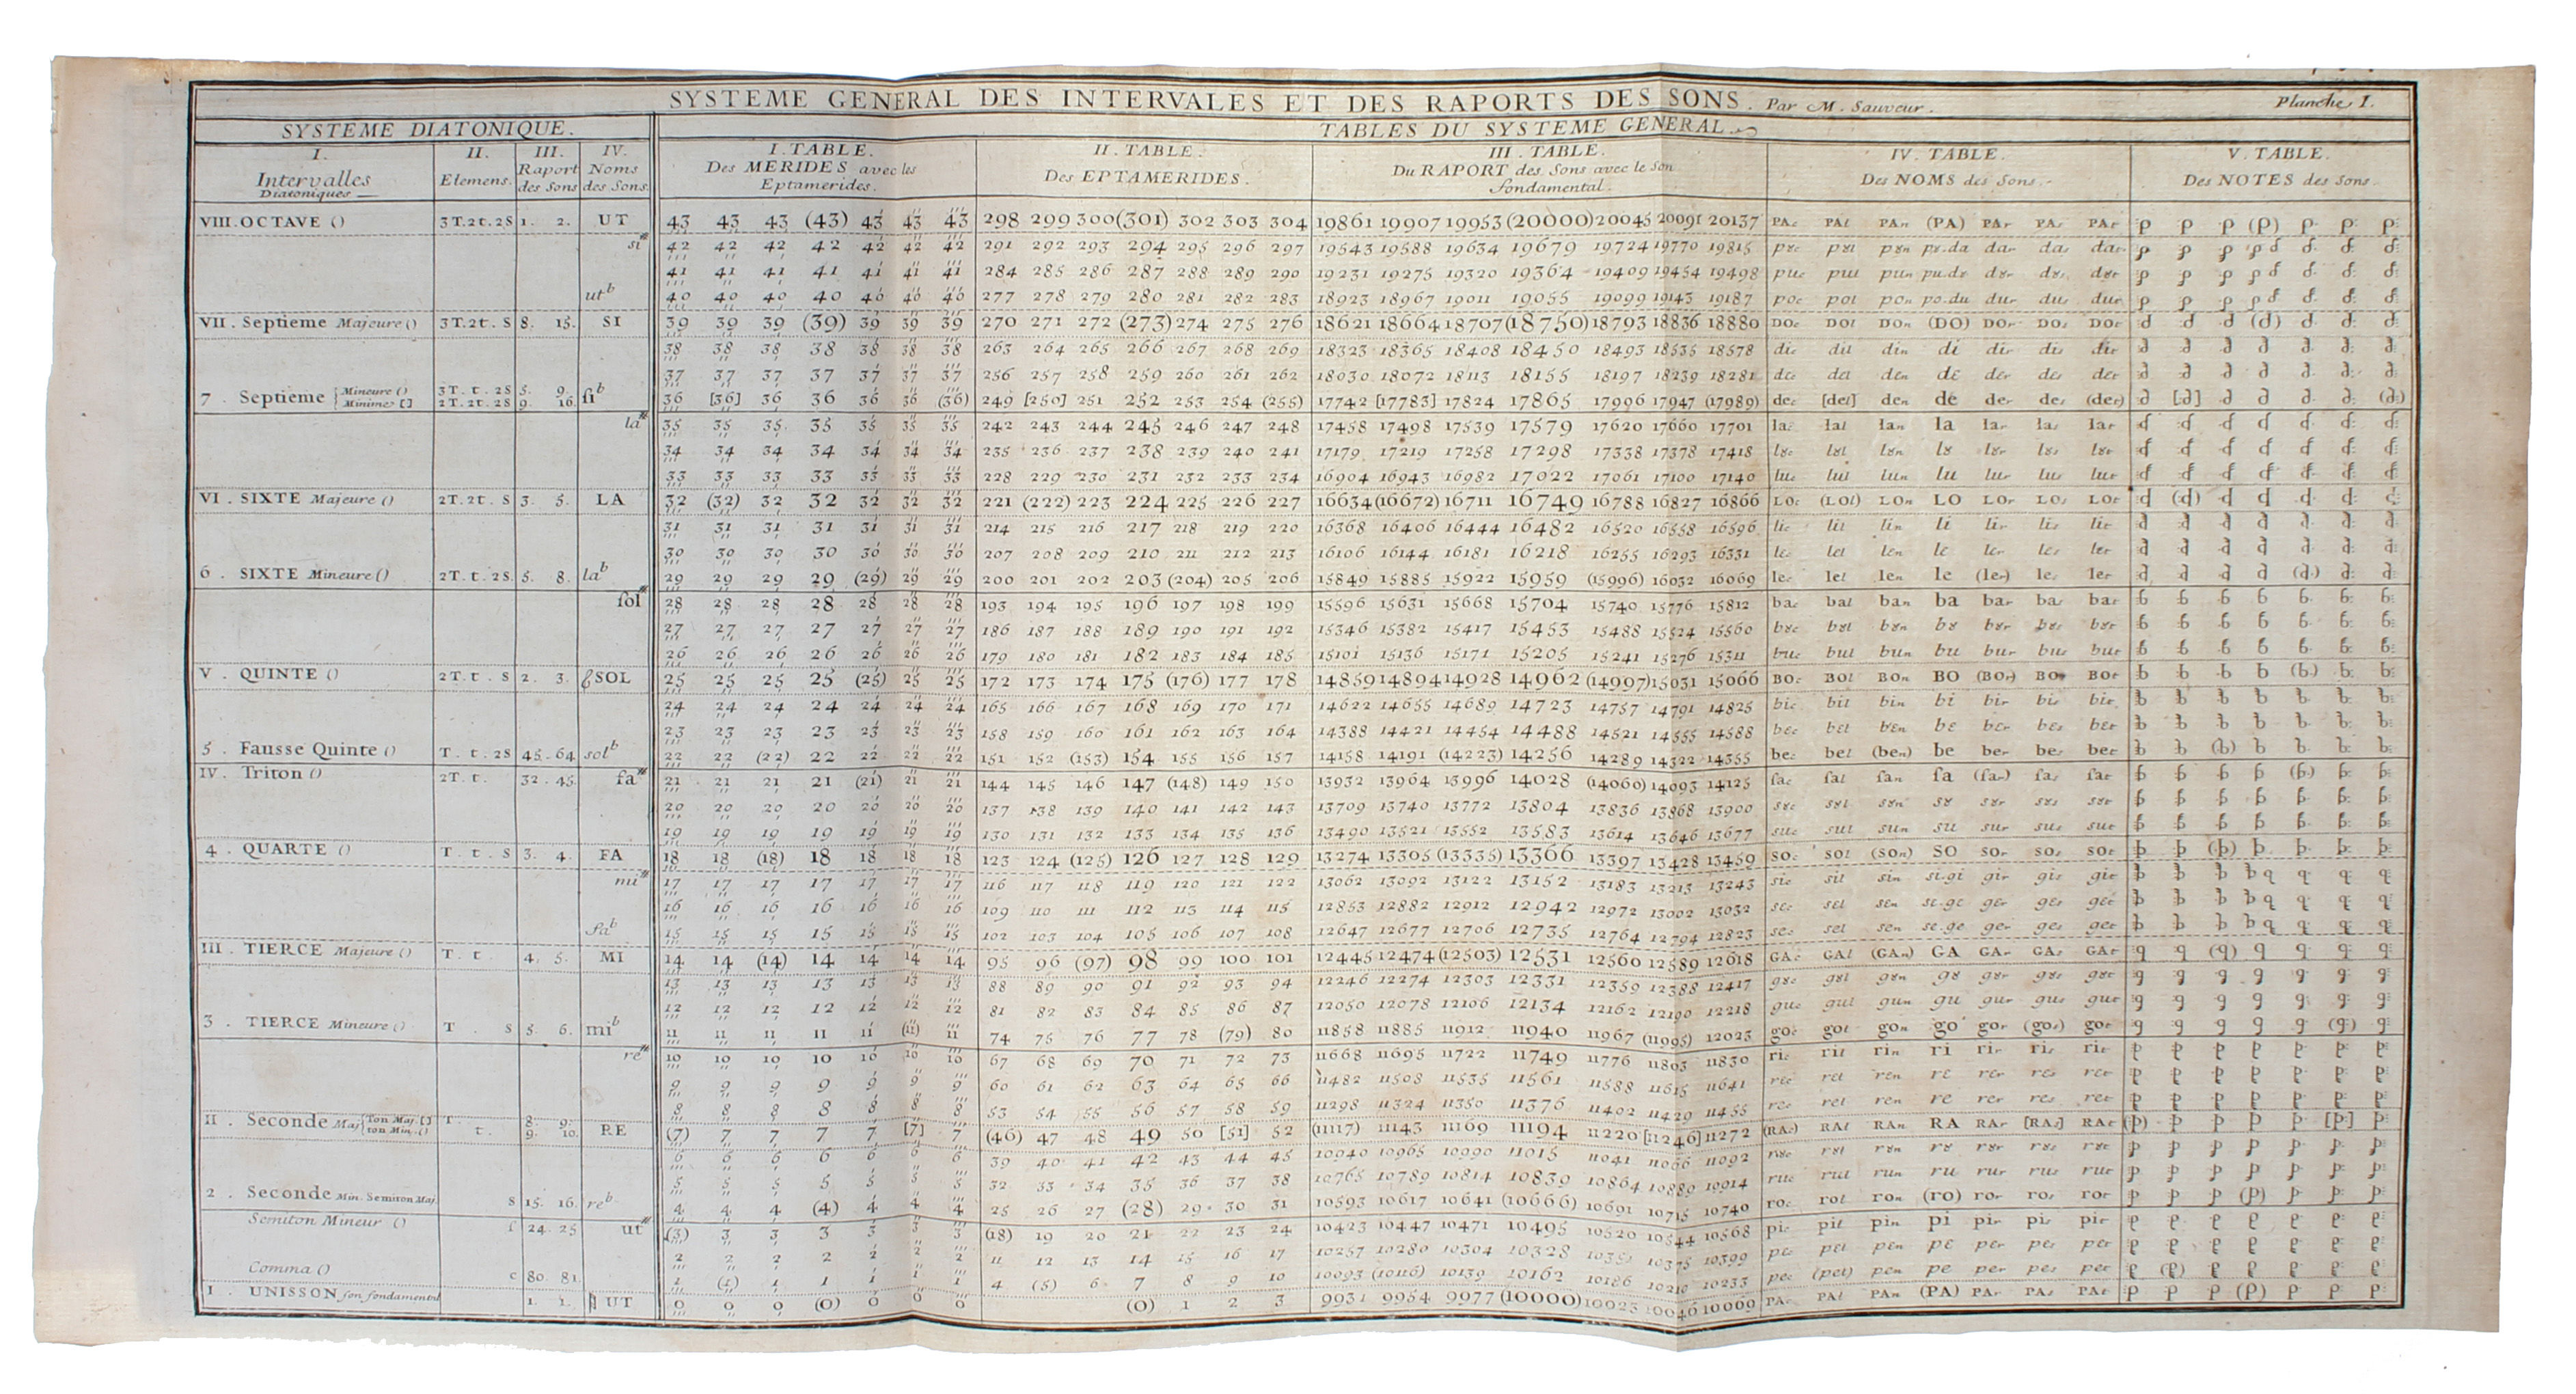 SYSTEME GENERAL DES INTERVALES ET DES RAPORTS DES SONS. Par M. Sauveur. Planche I.
SYSTEME DIATONIQUE. TABLES DU SYSTEME GENERAL.
I. Intervalles Diatoniques II. Elemens. III. Raport des Sons IV. Noms des Sons.
I. TABLE. Des MERIDES avec les Eptamerides.
II. TABLE. Des EPTAMERIDES.
III. TABLE. Du RAPORT des Sons avec le Son fondamental.
IV. TABLE. Des NOMS des Sons.
V. TABLE. Des NOTES des Sons.
VIII. OCTAVE () 3T.2t.2S 1. 2. UT 43 43 43 (43) 43 43 43 298 299 300 (301) 302 303 304 19861 19907 19953 (20000) 20045 20091 20137 PAc PAl PAn (PA) PAr PAs PAt
si 42 42 42 42 42 42 42 291 292 293 294 295 296 297 19543 19588 19634 19679 19724 19770 19815
41 41 41 41 41 41 41 284 285 286 287 288 289 290 19231 19275 19320 19364 19409 19454 19498
ut b 40 40 40 40 40 40 40 277 278 279 280 281 282 283 18923 18967 19011 19055 19099 19143 19187
VII. Septieme Majeure () 3T.2t. S 8. 15. SI 39 39 39 (39) 39 39 39 270 271 272 (273) 274 275 276 18621 18664 18707 (18750) 18793 18836 18880 DOc DOl DOn (DO) DOr DOs DOt
38 38 38 38 38 38 38 263 264 265 266 267 268 269 18323 18365 18408 18450 18493 18535 18578 dic dil din di dir dis dit
37 37 37 37 37 37 37 256 257 258 259 260 261 262 18030 18072 18113 18155 18197 18239 18281 dec del den de der des det
7. Septieme Mineure () Minime [] 3T. t. 2S 2T. 2t. 2S 5. 9. 9. 16. si b 36 [36] 36 36 36 36 (36) 249 [250] 251 252 253 254 (255) 17742 [17783] 17824 17865 17996 17947 (17989) dec [del] den de der des (der)
la 35 35 35 35 35 35 35 242 243 244 245 246 247 248 17458 17498 17539 17579 17620 17660 17701 lac lal lan la lar las lat
34 34 34 34 34 34 34 235 236 237 238 239 240 241 17179 17219 17258 17298 17338 17378 17418
33 33 33 33 33 33 33 228 229 230 231 232 233 234 16904 16943 16982 17022 17061 17100 17140 luc lul lun lu lur lus lut
VI. SIXTE Majeure () 2T.2t. S 3. 5. LA 32 (32) 32 32 32 32 32 221 (222) 223 224 225 226 227 16634 (16672) 16711 16749 16788 16827 16866 LOc (LOl) LOn LO LOr LOs LOt
31 31 31 31 31 31 31 214 215 216 217 218 219 220 16368 16406 16444 16482 16520 16558 16596 lic lil lin li lir lis lit
30 30 30 30 30 30 30 207 208 209 210 211 212 213 16106 16144 16181 16218 16255 16293 16331 lec lel len le ler les let
6. SIXTE Mineure () 2T. t. 2S. 5. 8. la b 29 29 29 29 (29) 29 29 200 201 202 203 (204) 205 206 15849 15885 15922 15959 (15996) 16032 16069 lec lel len le (ler) les let
sol 28 28 28 28 28 28 28 193 194 195 196 197 198 199 15596 15631 15668 15704 15740 15776 15812 bac bal ban ba bar bas bat
27 27 27 27 27 27 27 186 187 188 189 190 191 192 15346 15382 15417 15453 15488 15524 15560
26 26 26 26 26 26 26 179 180 181 182 183 184 185 15101 15136 15171 15205 15241 15276 15311 buc bul bun bu bur bus but
V. QUINTE () 2T. t. S 2. 3. SOL 25 25 25 25 (25) 25 25 172 173 174 175 (176) 177 178 14859 14894 14928 14962 (14997) 15031 15066 BOc BOl BOn BO (BOr) BOs BOt
24 24 24 24 24 24 24 165 166 167 168 169 170 171 14622 14655 14689 14723 14757 14791 14825 bic bil bin bi bir bis bit
23 23 23 23 23 23 23 158 159 160 161 162 163 164 14388 14421 14454 14488 14521 14555 14588 bec bel ben be ber bes bet
5. Fausse Quinte () T. t. 2S 45. 64 sol b 22 22 (22) 22 22 22 22 151 152 (153) 154 155 156 157 14158 14191 (14223) 14256 14289 14322 14355 bec bel (ben) be ber bes bet
IV. Triton () 2T. t. 32. 45. fa 21 21 21 21 (21) 21 21 144 145 146 147 (148) 149 150 13932 13964 13996 14028 (14060) 14093 14125 fac fal fan fa (far) fas fat
20 20 20 20 20 20 20 137 138 139 140 141 142 143 13709 13740 13772 13804 13836 13868 13900
19 19 19 19 19 19 19 130 131 132 133 134 135 136 13490 13521 13552 13583 13614 13646 13677 suc sul sun su sur sus sut
4. QUARTE () T. t. S 3. 4. FA 18 18 (18) 18 18 18 18 123 124 (125) 126 127 128 129 13274 13305 (13335) 13366 13397 13428 13459 SOc SOl (SOn) SO SOr SOs SOt
mi 17 17 17 17 17 17 17 116 117 118 119 120 121 122 13062 13092 13122 13152 13183 13213 13243 sic sil sin si.gi gir gis git
16 16 16 16 16 16 16 109 110 111 112 113 114 115 12853 12882 12912 12942 12972 13002 13032 sec sel sen se.ge ger ges get
fa b 15 15 15 15 15 15 15 102 103 104 105 106 107 108 12647 12677 12706 12735 12764 12794 12823 sec sel sen se.ge ger ges get
III. TIERCE Majeure () T. t. 4. 5. MI 14 14 (14) 14 14 14 14 95 96 (97) 98 99 100 101 12445 12474 (12503) 12531 12560 12589 12618 GAc GAl (GAn) GA GAr GAs GAt
13 13 13 13 13 13 13 88 89 90 91 92 93 94 12246 12274 12303 12331 12359 12388 12417
12 12 12 12 12 12 12 81 82 83 84 85 86 87 12050 12078 12106 12134 12162 12190 12218 guc gul gun gu gur gus gut
3. TIERCE Mineure () T. S 5. 6. mi b 11 11 11 11 11 (11) 11 74 75 76 77 78 (79) 80 11858 11885 11912 11940 11967 (11995) 12023 goc gol gon go gor (gos) got
re 10 10 10 10 10 10 10 67 68 69 70 71 72 73 11668 11695 11722 11749 11776 11803 11830 ric ril rin ri rir ris rit
9 9 9 9 9 9 9 60 61 62 63 64 65 66 11482 11508 11535 11561 11588 11615 11641 rec rel ren re rer res ret
8 8 8 8 8 8 8 53 54 55 56 57 58 59 11298 11324 11350 11376 11402 11429 11455 rec rel ren re rer res ret
II. Seconde Maj. Ton Maj. [] ton Min. () T. t. 8. 9. 9. 10. RE (7) 7 7 7 7 [7] 7 (46) 47 48 49 50 [51] 52 (11117) 11143 11169 11194 11220 [11246] 11272 (RAc) RAl RAn RA RAr [RAs] RAt
6 6 6 6 6 6 6 39 40 41 42 43 44 45 10940 10965 10990 11015 11041 11066 11092
5 5 5 5 5 5 5 32 33 34 35 36 37 38 10765 10789 10814 10839 10864 10889 10914 ruc rul run ru rur rus rut
2. Seconde Min. Semiton Maj. S 15. 16. re b 4 4 4 (4) 4 4 4 25 26 27 (28) 29 30 31 10593 10617 10641 (10666) 10691 10715 10740 roc rol ron (ro) ror ros rot
Semiton Mineur () f 24. 25 ut (3) 3 3 3 3 3 3 (18) 19 20 21 22 23 24 10423 10447 10471 10495 10520 10544 10568 pic pil pin pi pir pis pit
2 2 2 2 2 2 2 11 12 13 14 15 16 17 10257 10280 10304 10328 10375 10399 pec pel pen pe per pes pet
Comma () c 80. 81. 1 (1) 1 1 1 1 1 4 (5) 6 7 8 9 10 10093 (10116) 10139 10162 10186 10210 10233 pec (pel) pen pe per pes pet
I. UNISSON son fondamental 1. 1. UT 0 0 0 (0) 0 0 0 (0) 1 2 3 9931 9954 9977 (10000) 10023 10046 10069 PAc PAl PAn (PA) PAr PAs PAt